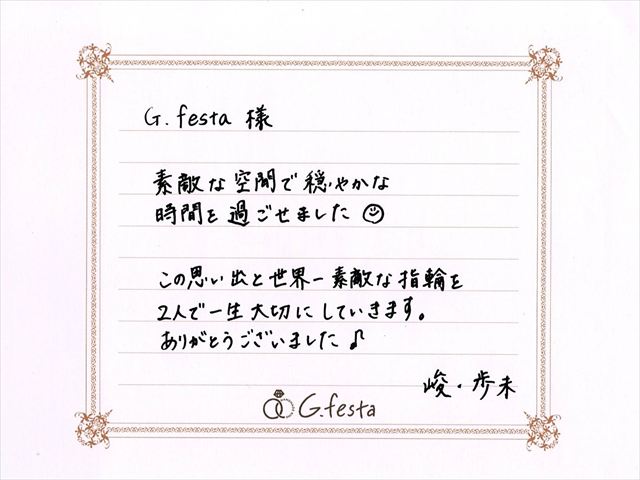 G.festa 様
素敵な空間で穏やかな
時間を過ごせました☺
この思い出と世界一素敵な指輪を
2人で一生大切にしていきます。
ありがとうございました♪
峻・歩未
G.festa